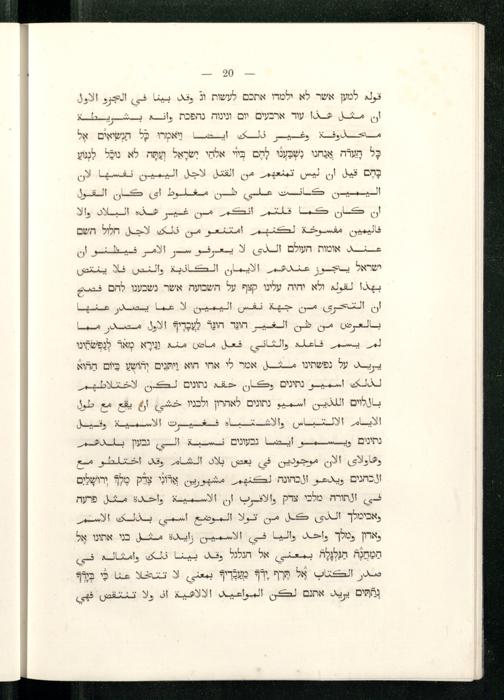 — 20 —
قوله למען אשר לא ילמדו אתכם לעשות וג̇ وقد بينا في الجزو الاول
ان مثل هذا עוד ארבעים יום ונינוה נהפכת وانه بشريطة
محذوفة وغير ذلك ايضا וַיאמרו כׇל הַנְשִׂיאִים אֶל
כׇּל הָעֵדׇה אֲנַחְנוּ נִשְׁבַּעְנוּ לָהֶם בַּיְיׇ אלהֵי יִשְׂרָאֵל וְעַתׇּה לֹא נוּכַל לִנְגּוֹעַ
בׇּהֶם قيل ان ليس تمنعهم من القتل لاجل اليمين نفسها لان
اليمين كانت علي ظن مغلوط اى كان القول
ان كان كما قلتم انكم من غير هذه البلاد والا
فاليمين مفسوخة لكنهم امتنعو من ذلك لاجل חלול השם
عند אומות העולם الذى لا يعرفو سر الامر فيظنو ان
ישראל يجوز عندهم الايمان الكاذبة والنص فلا ينتص
بهذا لقوله ולא יהיה עלינו קצף על השבועה אשר נשבענו להם فصح
ان التحرى من جهة نفس اليمين لا عما يصدر عنها
بالعرض من ظن الغير הוּגַד הֻגַּד לַעֲבָדֶיךׇ الاول مصدر مما
لم يسم فاعله والثاني فعل ماض منه וַנִּירָא מְאֹד לְנַפְשֹׁתֵינוּ
يريد على נפשתינו مثل אמר לי אחי הוא וַיִתְּנֵם יְהוֹשֻׁעַ בַּיּוֹם הַהוּא
لذلك اسميو נתונים وكان حقه נתונים لكن لاختلاطهم
بאלולוים اللذين اسميو נתונים לאהרון ולבניו خشي ان يقع مع طول
الايام الالتباس والاشتباه فغيرت الاسمية وقيل
נתונים ويسمو ايضا גבעונים نسبة الي גבעון بلدهم
وهاولاى الان موجودين في بعض بلاد الشام وقد اختلطو مع
الכהנים ويدعو الכהונה لكنهم مشهورين אֲדֹנִי צֶדֶק מֶלֶךְ יְרוּשָׁלַיִם
في الתורה מלכי צדק والاقرب ان الاسمية واحدة مثل פרעה
وאבימלך الذى كل من تولا الموضع اسمي بذلك الاسم
وאדון وמלך واحد واليا في الاسمين زايدة مثل בני אתונו אֶל
הַמַּחֲנֶה הַגִּלְגָּלָה بمعني אל הגלגל وقد بينا ذلك وامثاله في
صدر الكتاب אַל תֶּרֶף יׇדֶךׇ מֵעֲבָדֶיךׇ بمعني لا تتخلا عنا כִּי בְיׇדְךׇ
נְתַתִּים يريد אתנם لكن المواعيد الالاهية اذ ولا تنتقض فهي